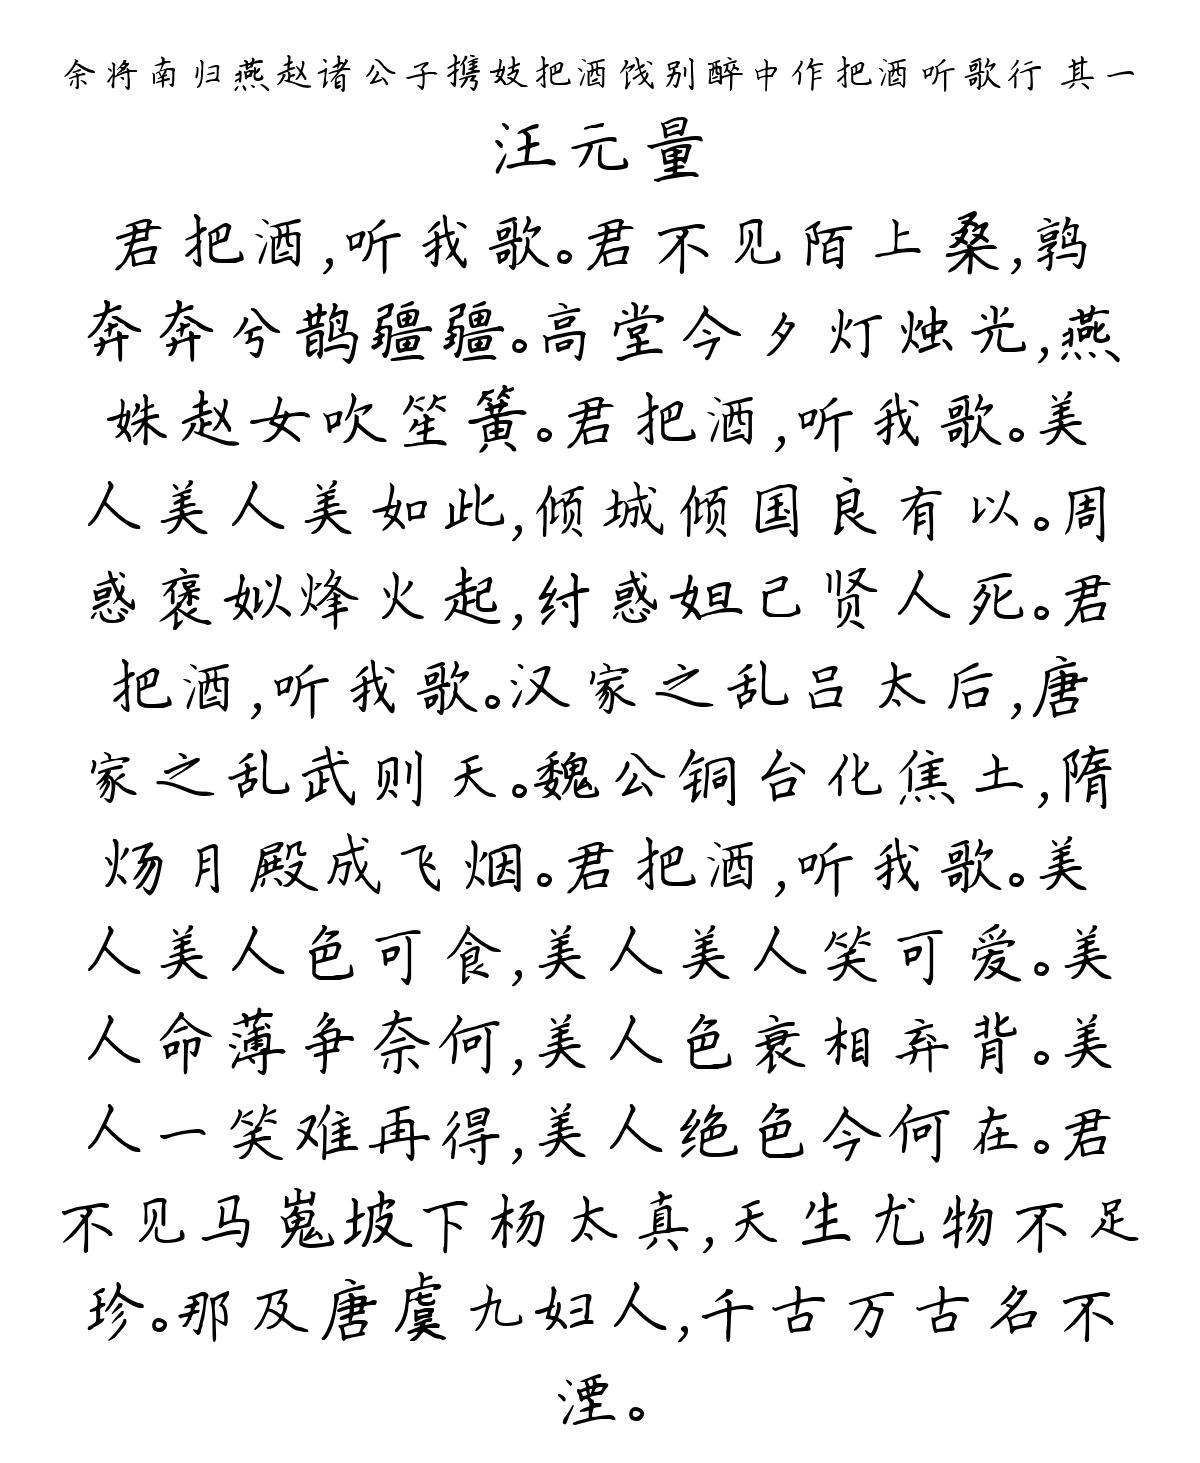 余将南归燕赵诸公子携妓把酒饯别醉中作把酒听歌行 其一
汪元量
君把酒,听我歌。君不见陌上桑,鹑
奔奔兮鹊疆疆。高堂今夕灯烛光,燕
姝赵女吹笙簧。君把酒,听我歌。美
人美人美如此,倾城倾国良有以。周
惑褒姒烽火起,纣惑妲己贤人死。君
把酒,听我歌。汉家之乱吕太后,唐
家之乱武则天。魏公铜台化焦土,隋
炀月殿成飞烟。君把酒,听我歌。美
人美人色可食,美人美人笑可爱。美
人命薄争奈何,美人色衰相弃背。美
人一笑难再得,美人绝色今何在。君
不见马嵬坡下杨太真,天生尤物不足
珍。那及唐虞九妇人,千古万古名不
湮。